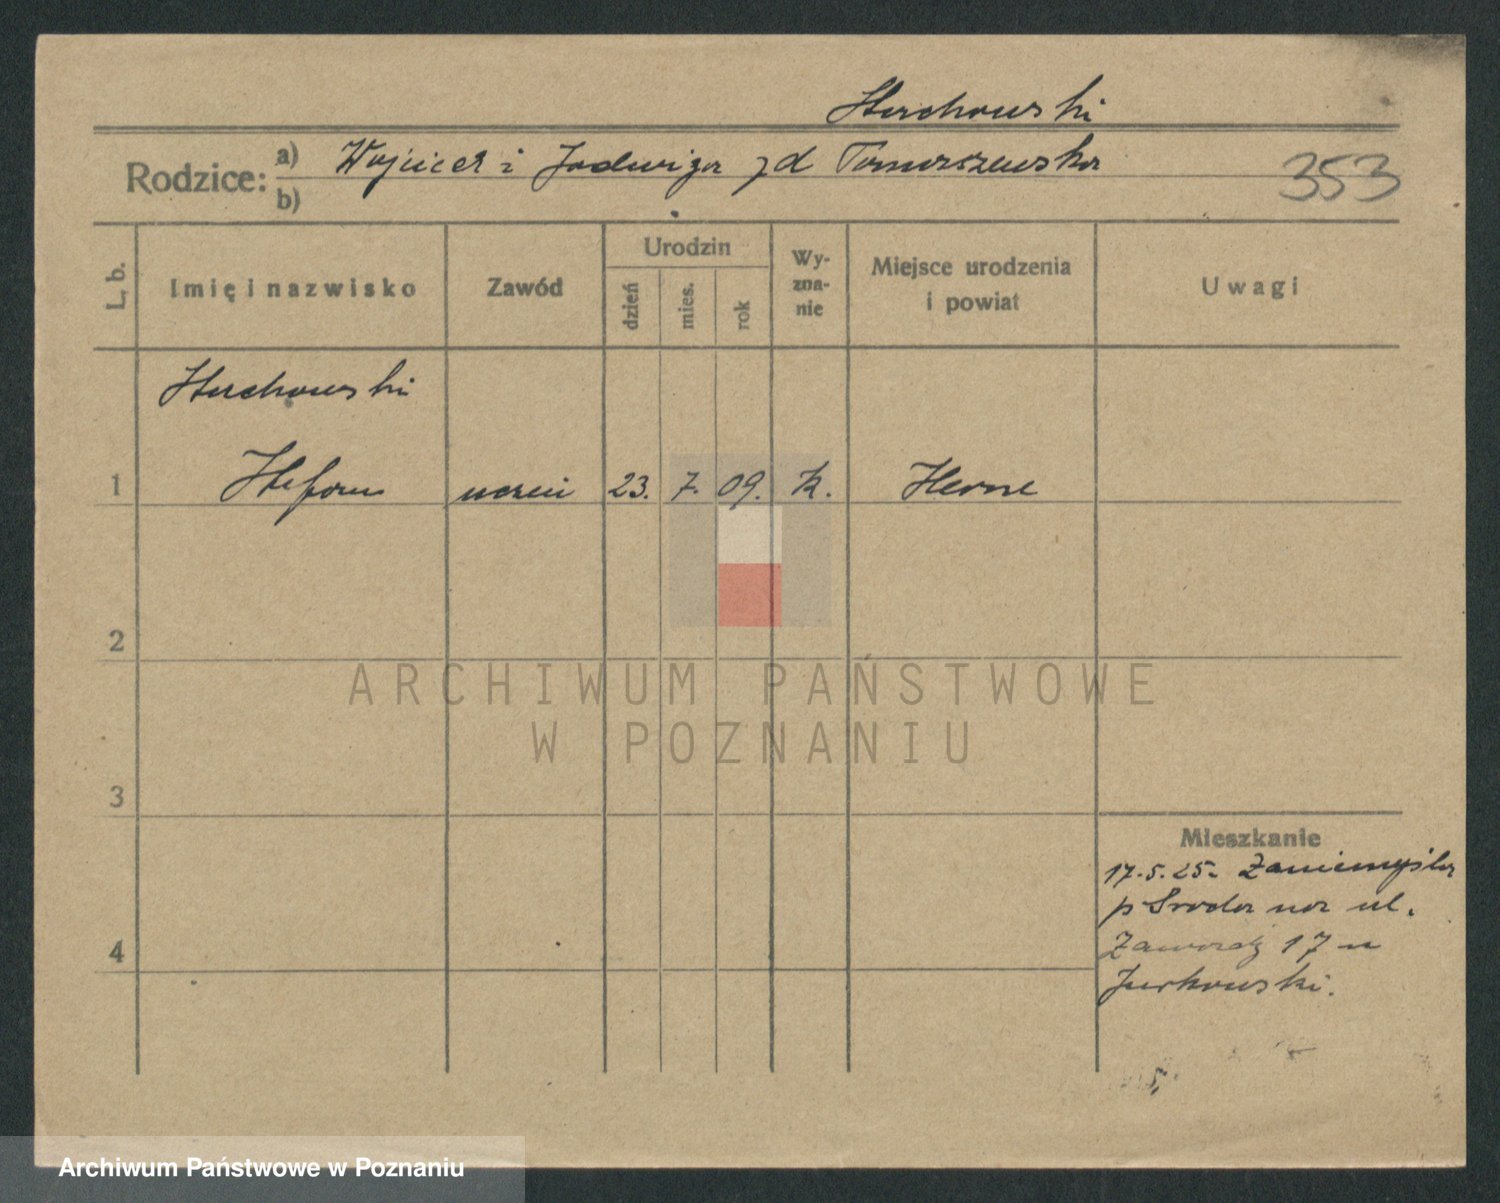 Stachowski
Rodzice: a) Wojciech i Jadwiga zd Tomaszewska
b)
353
L. b.
Imię i nazwisko
Zawód
Urodzin
dzień
mies.
rok
Wy-
zna-
nie
Miejsce urodzenia
i powiat
Uwagi
Stachowski
1 Stefan uczeń 23. 7. 09. k. Herne
2
ARCHIWUM PAŃSTWOWE
W POZNANIU
3
Mieszkanie
17.5.25. Zaniemyśla
p Środa na ul.
4
17 u
Jurkowski.
Archiwum Państwowe w Poznaniu